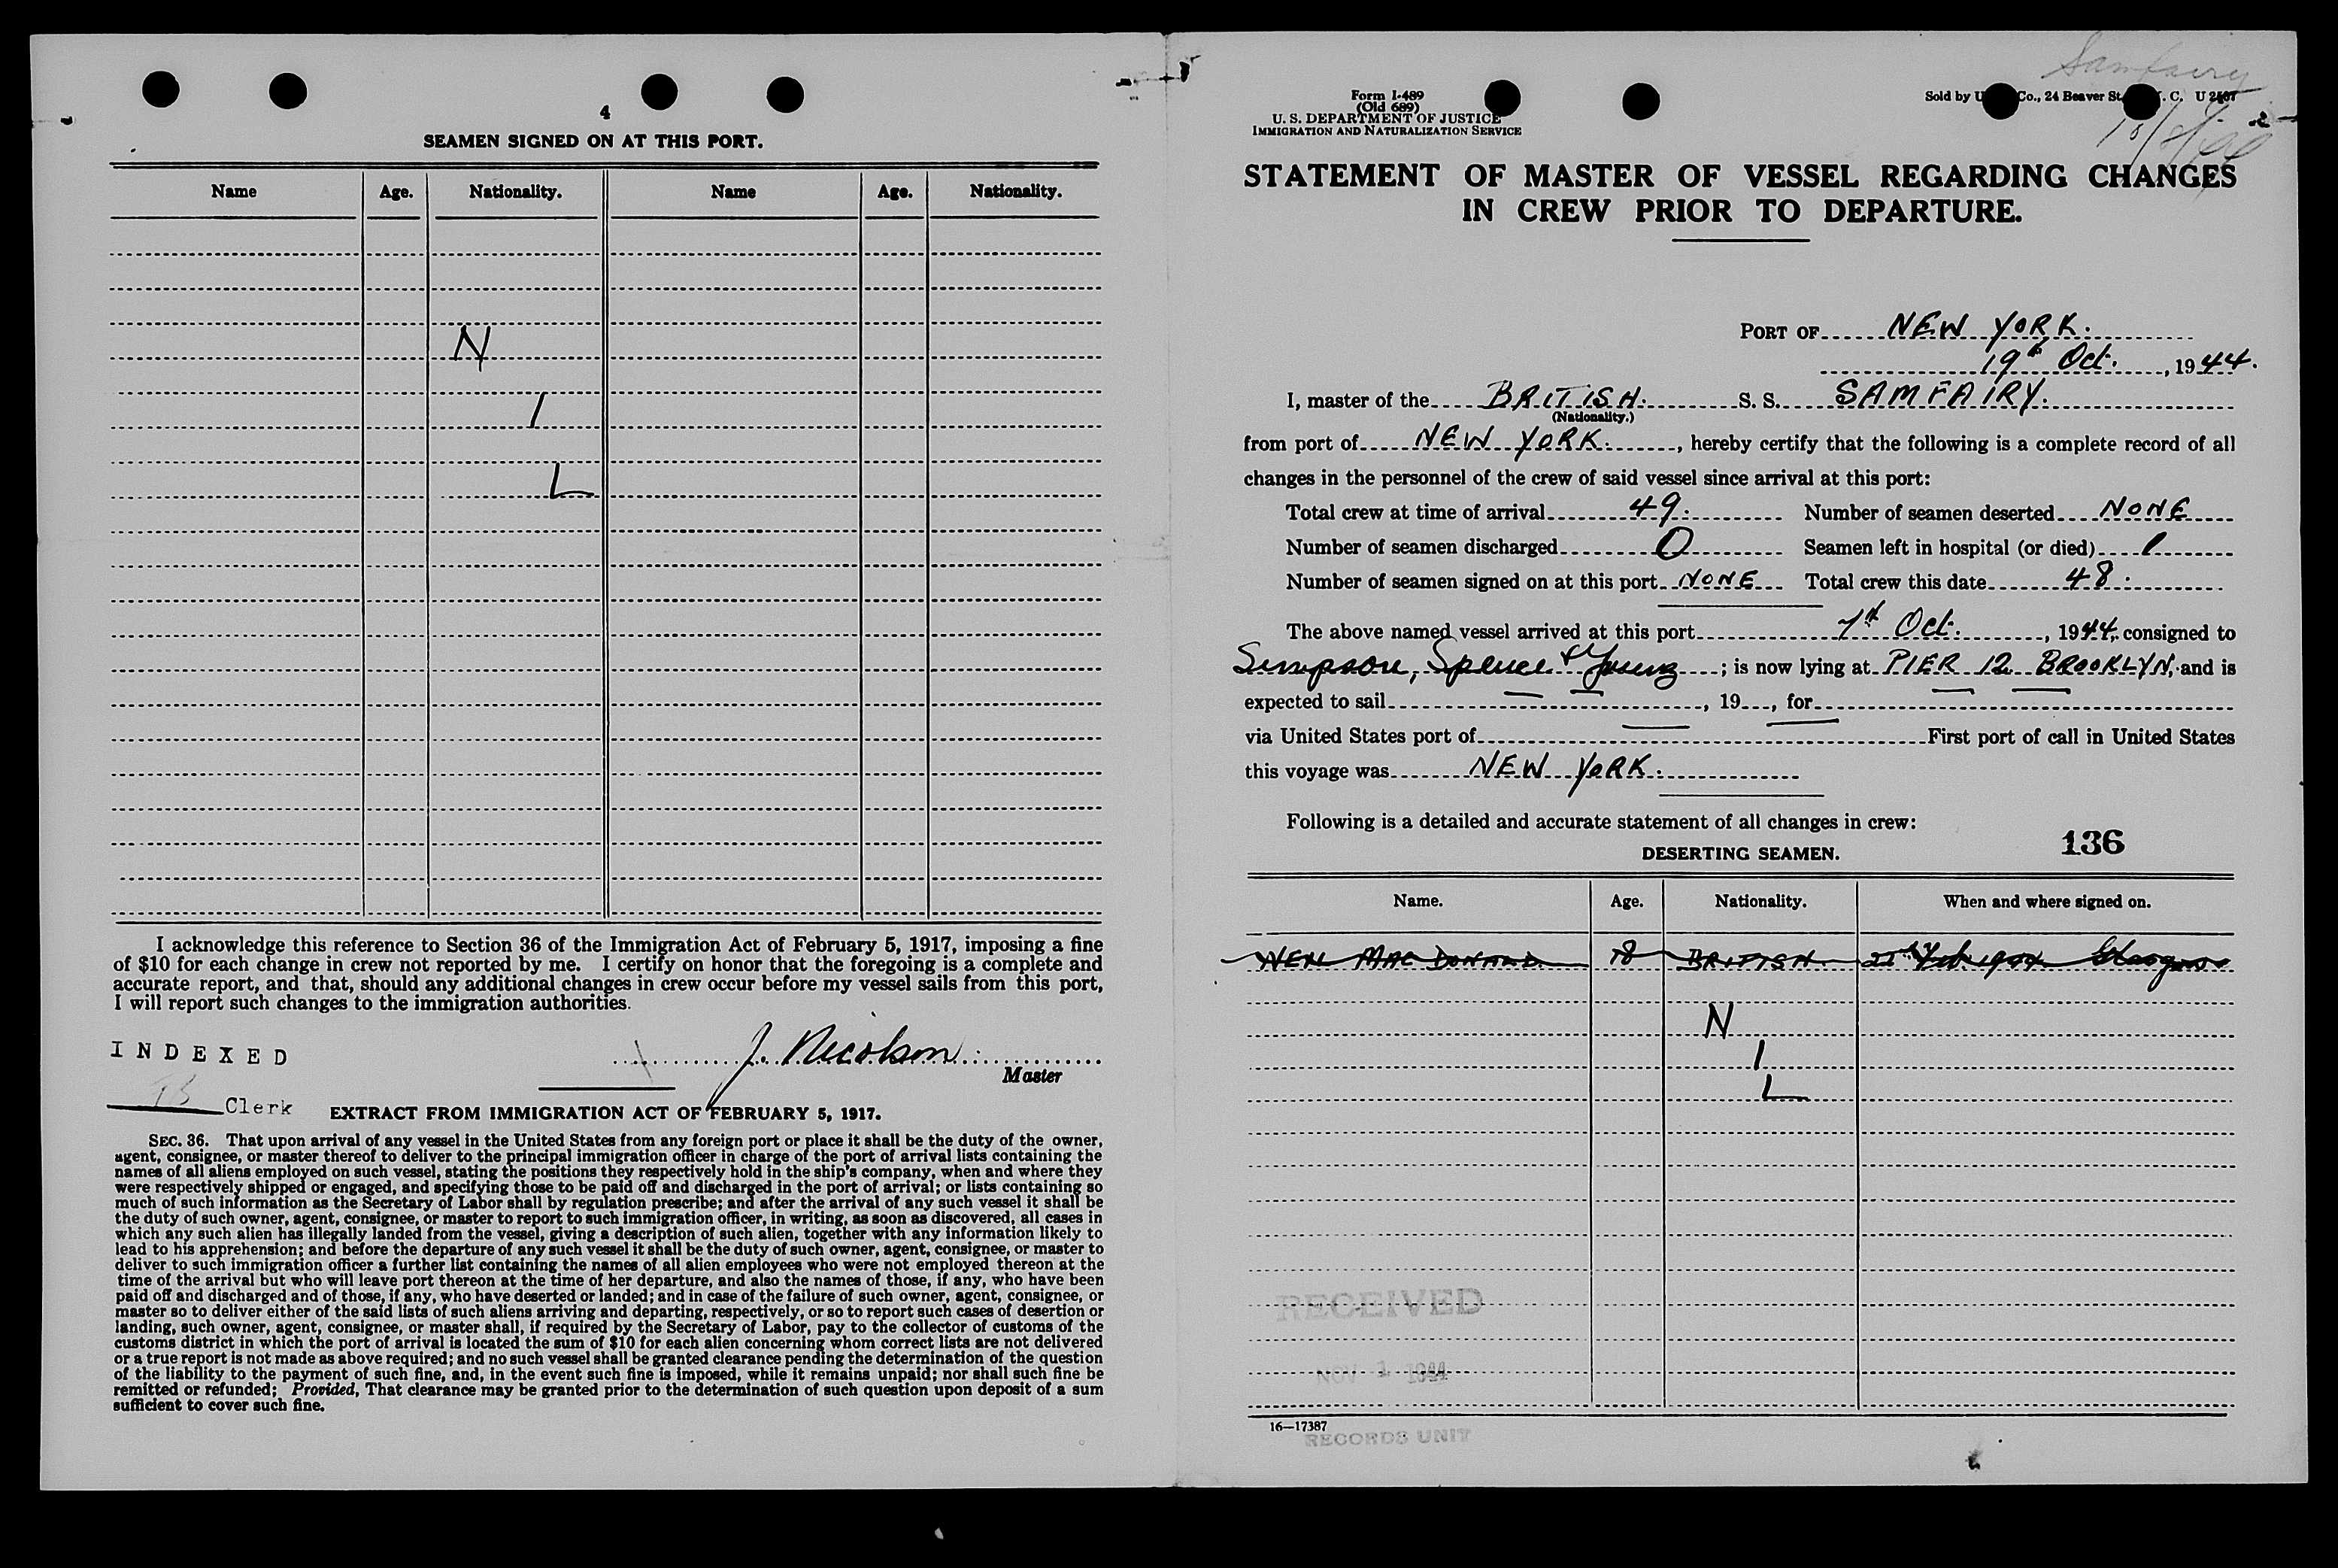 4
SEAMEN SIGNED ON AT THIS PORT.
Name Age. Nationality. Name Age. Nationality.
N
I
L
I acknowledge this reference to Section 36 of the Immigration Act of February 5, 1917, imposing a fine
of $10 for each change in crew not reported by me. I certify on honor that the foregoing is a complete and
accurate report, and that, should any additional changes in crew occur before my vessel sails from this port,
I will report such changes to the immigration authorities.
INDEXED
J. Nicolson
Master
Clerk
EXTRACT FROM IMMIGRATION ACT OF FEBRUARY 5, 1917.
SEC. 36. That upon arrival of any vessel in the United States from any foreign port or place it shall be the duty of the owner,
agent, consignee, or master thereof to deliver to the principal immigration officer in charge of the port of arrival lists containing the
names of all aliens employed on such vessel, stating the positions they respectively hold in the ship's company, when and where they
were respectively shipped or engaged, and specifying those to be paid off and discharged in the port of arrival; or lists containing so
much of such information as the Secretary of Labor shall by regulation prescribe; and after the arrival of any such vessel it shall be
the duty of such owner, agent, consignee, or master to report to such immigration officer, in writing, as soon as discovered, all cases in
which any such alien has illegally landed from the vessel, giving a description of such alien, together with any information likely to
lead to his apprehension; and before the departure of any such vessel it shall be the duty of such owner, agent, consignee, or master to
deliver to such immigration officer a further list containing the names of all alien employees who were not employed thereon at the
time of the arrival but who will leave port thereon at the time of her departure, and also the names of those, if any, who have been
paid off and discharged and of those, if any, who have deserted or landed; and in case of the failure of such owner, agent, consignee, or
master so to deliver either of the said lists of such aliens arriving and departing, respectively, or so to report such cases of desertion or
landing, such owner, agent, consignee, or master shall, if required by the Secretary of Labor, pay to the collector of customs of the
customs district in which the port of arrival is located the sum of $10 for each alien concerning whom correct lists are not delivered
or a true report is not made as above required; and no such vessel shall be granted clearance pending the determination of the question
of the liability to the payment of such fine, and, in the event such fine is imposed, while it remains unpaid; nor shall such fine be
remitted or refunded; Provided, That clearance may be granted prior to the determination of such question upon deposit of a sum
sufficient to cover such fine.
Samfairy
Form I-489
(Old 689)
U. S. DEPARTMENT OF JUSTICE
IMMIGRATION AND NATURALIZATION SERVICE
Sold by U Co., 24 Beaver St. C. U
STATEMENT OF MASTER OF VESSEL REGARDING CHANGES
IN CREW PRIOR TO DEPARTURE.
PORT OF NEW YORK.
19th Oct. , 1944.
I, master of the BRITISH. S. S. SAMFAIRY.
(Nationality.)
from port of NEW YORK. , hereby certify that the following is a complete record of all
changes in the personnel of the crew of said vessel since arrival at this port:
Total crew at time of arrival 49. Number of seamen deserted NONE
Number of seamen discharged 0 Seamen left in hospital (or died) 1
Number of seamen signed on at this port NONE Total crew this date 48.
The above named vessel arrived at this port 7th Oct. , 1944, consigned to
Simpson, Spence & Young ; is now lying at PIER 12 BROOKLYN, and is
expected to sail — — , 19 , for — —
via United States port of — — First port of call in United States
this voyage was NEW YORK.
Following is a detailed and accurate statement of all changes in crew:
136
DESERTING SEAMEN.
Name. Age. Nationality. When and where signed on.
NEIL MAC DONALD 18 BRITISH Feb 1944 Glasgow
N
I
L
RECEIVED
NOV 1 1944
16—17387
RECORDS UNIT